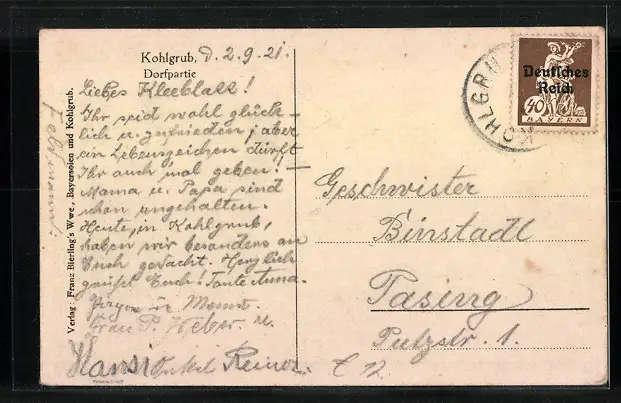 Kohlgrub, d. 2.9.21.
Dorfpartie
Liebes Kleeblatt!
Ihr seid wohl glück-
lich u. zufrieden, aber
ein Lebenszeichen dürft
Ihr auch mal geben!
Mama u. Papa sind
schon ungehalten.
Heute, in Kohlgrub,
haben wir besonders an
Euch gedacht. Herzlich
grüßt Euch! Tante Anna.
Frau P. Weber u.
Hansi Onkel Reiner.
Verlag: Franz Bierling's Wwe., Bayersoien und Kohlgrub.
KOHLGRUB
Deutsches
Reich
40
BAYERN
Geschwister
Binstadl
Pasing
Putzstr. 1.